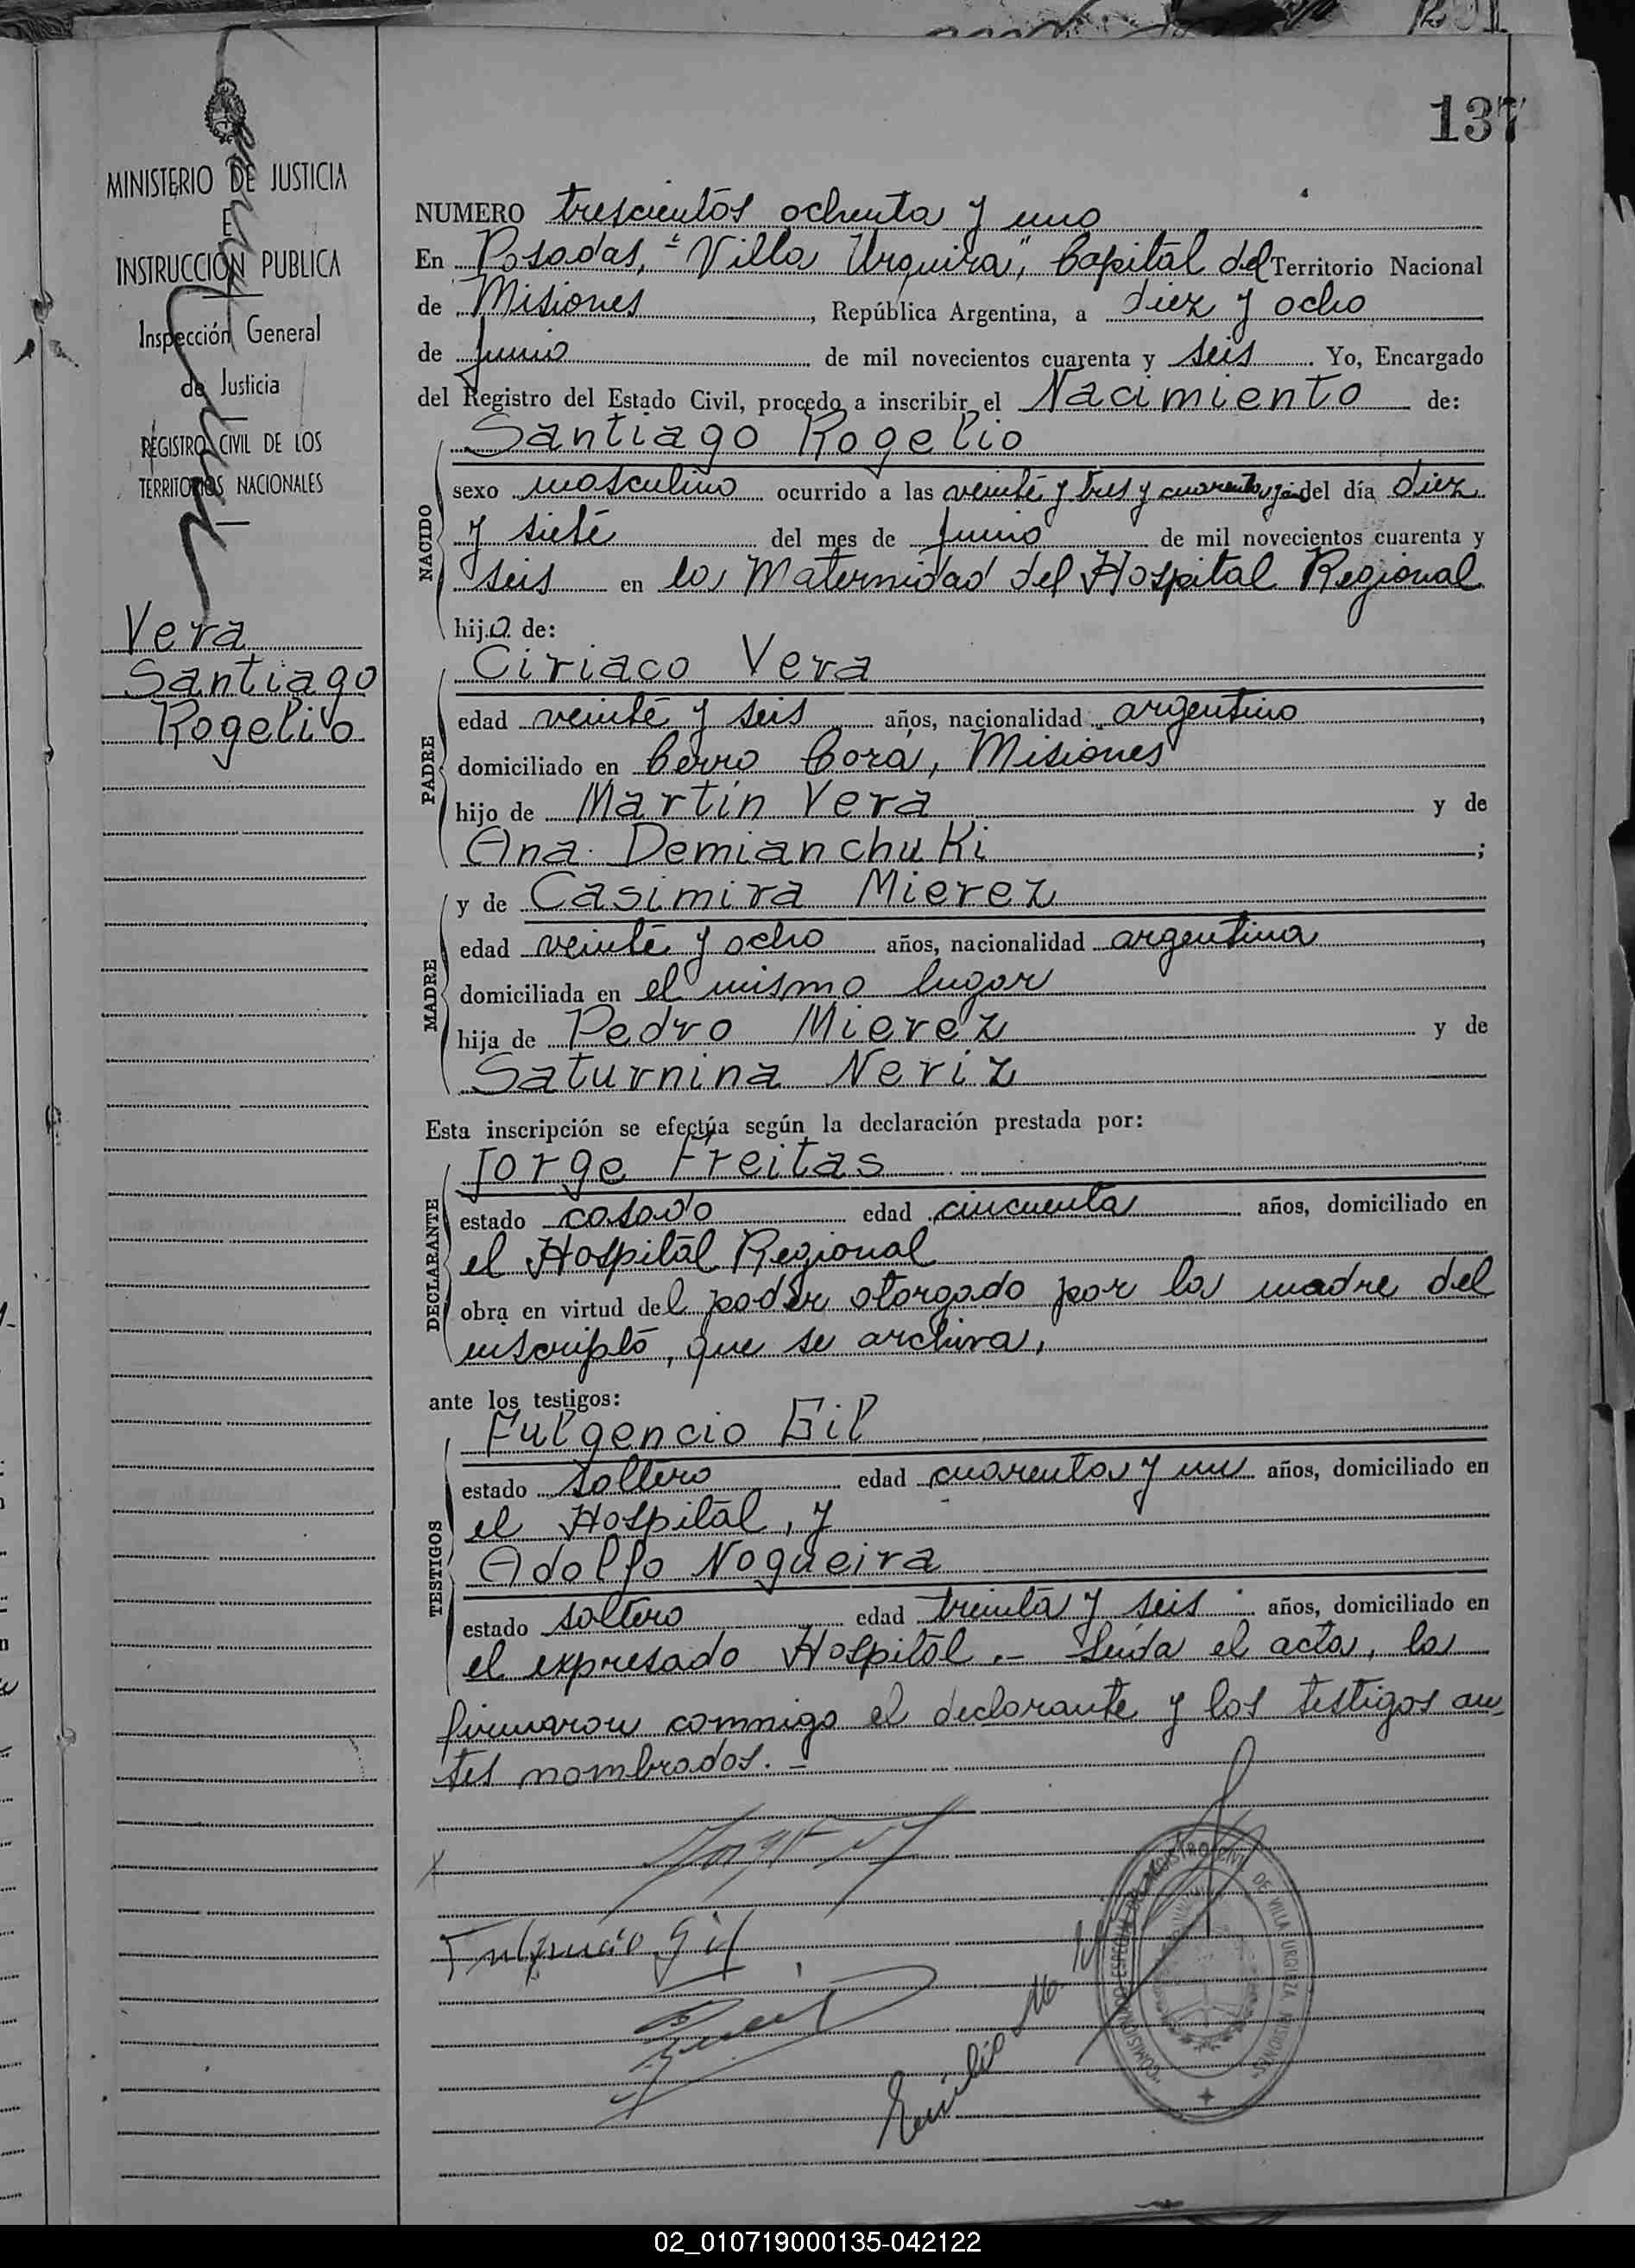 137
MINISTERIO DE JUSTICIA
E
INSTRUCCIÓN PUBLICA
Inspección General
de Justicia
REGISTRO CIVIL DE LOS
TERRITORIOS NACIONALES
Vera
Santiago
Rogelio
NUMERO trescientos ochenta y uno
En Posadas, "Villa Urquiza", Capital del Territorio Nacional
de Misiones, República Argentina, a diez y ocho
de junio de mil novecientos cuarenta y seis. Yo, Encargado
del Registro del Estado Civil, procedo a inscribir el Nacimiento de:
NACIDO
Santiago Rogelio
sexo masculino ocurrido a las veinte y tres y cuarenta y del día diez
y siete del mes de junio de mil novecientos cuarenta y
seis en la Maternidad del Hospital Regional
hijo de:
PADRE
Ciriaco Vera
edad veinte y seis años, nacionalidad argentino,
domiciliado en Cerro Corá, Misiones
hijo de Martín Vera y de
Ana Demianchuki;
MADRE
y de Casimira Mierez
edad veinte y ocho años, nacionalidad argentina,
domiciliada en el mismo lugar
hija de Pedro Mierez y de
Saturnina Neriz
Esta inscripción se efectúa según la declaración prestada por:
DECLARANTE
Jorge Freitas
estado casado edad cincuenta años, domiciliado en
el Hospital Regional
obra en virtud del poder otorgado por la madre del
inscripto, que se archiva,
ante los testigos:
TESTIGOS
Fulgencio Gil
estado soltero edad cuarenta y un años, domiciliado en
el Hospital, y
Adolfo Nogueira
estado soltero edad treinta y seis años, domiciliado en
el expresado Hospital.- Leída el acta, la
firmaron conmigo el declarante y los testigos an
tes nombrados.-
Fulgencio Gil
Emilio M.
COMISIONADO ESPECIAL DEL REGISTRO CIVIL DE VILLA URQUIZA MISIONES
02_010719000135-042122